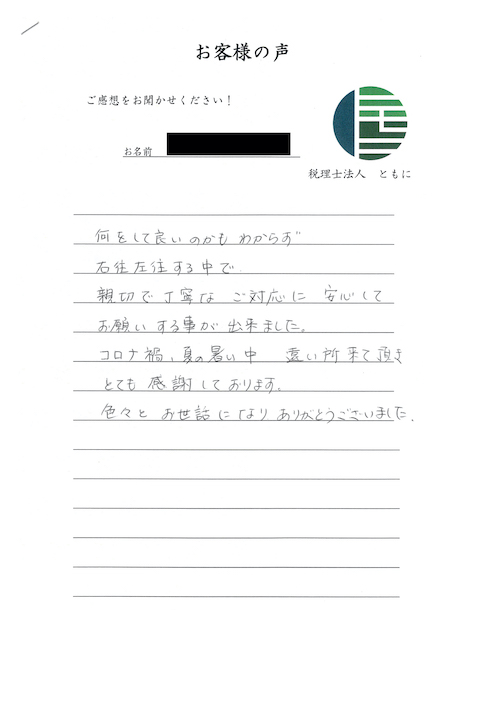 お客様の声
ご感想をお聞かせください！
お名前
税理士法人　ともに
何をして良いのかも わからず
右往左往する中で
親切で丁寧な ご対応に 安心して
お願いする事が 出来ました。
コロナ禍、夏の暑い中　遠い所来て頂き
とても 感謝しております。
色々と お世話になり ありがとうございました.